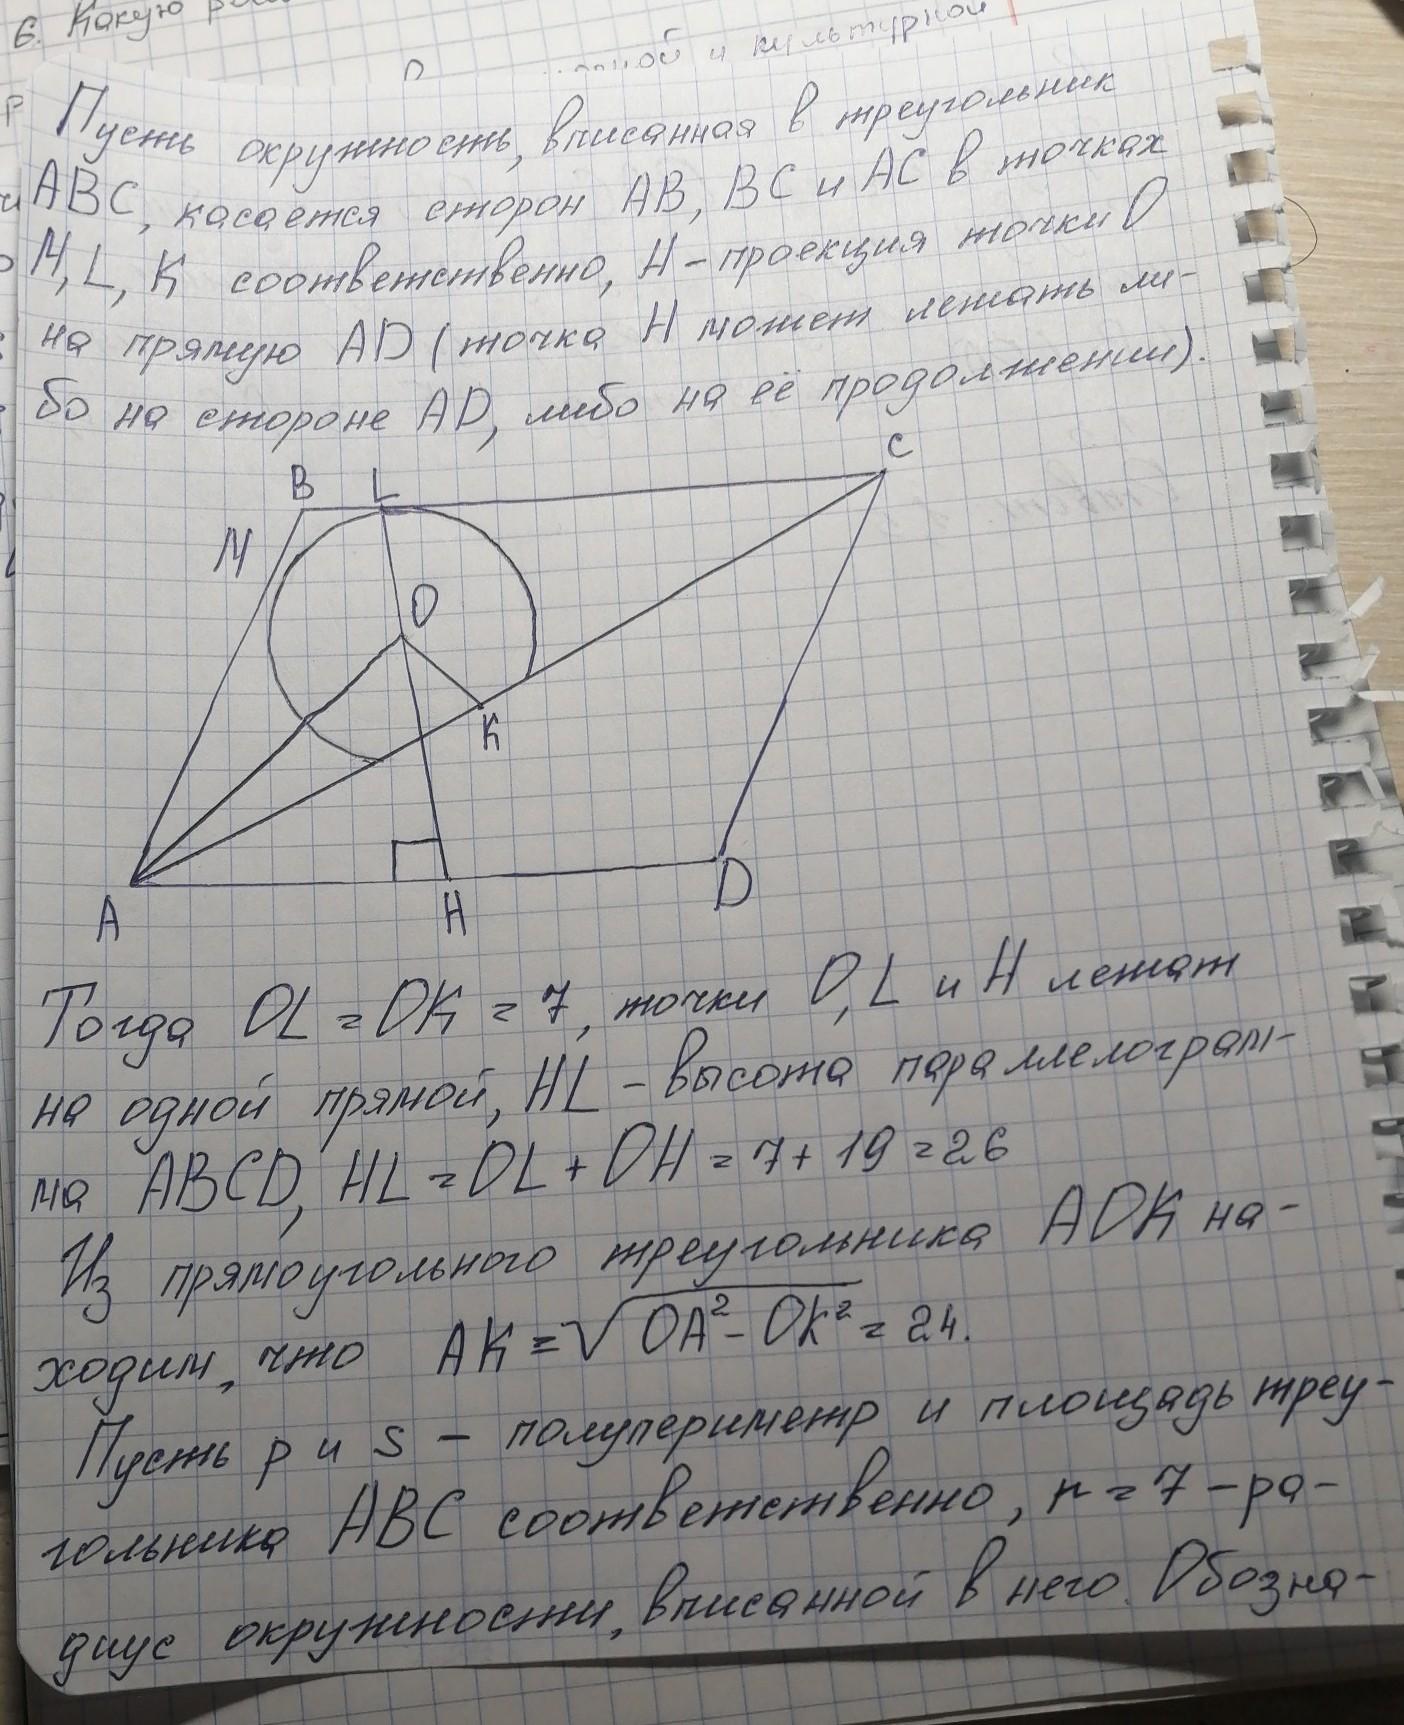 6. Какую
и культурной
Пусть окружность, вписанная в треугольник
ABC, касается сторон AB, BC и AC в точках
M, L, K соответственно, H - проекция точки O
на прямую AD (точка H может лежать ли-
бо на стороне AD, либо на её продолжении).
B L C
M
O
K
A H D
Тогда OL = OK = 7, точки O, L и H лежат
на одной прямой, HL - высота параллелограм-
ма ABCD, HL = OL + OH = 7 + 19 = 26
Из прямоугольного треугольника AOK на-
ходим, что AK = √OA² - OK² = 24.
Пусть p и s - полупериметр и площадь треу-
гольника ABC соответственно, r = 7 - ра-
диус окружности, вписанной в него. Обозна-